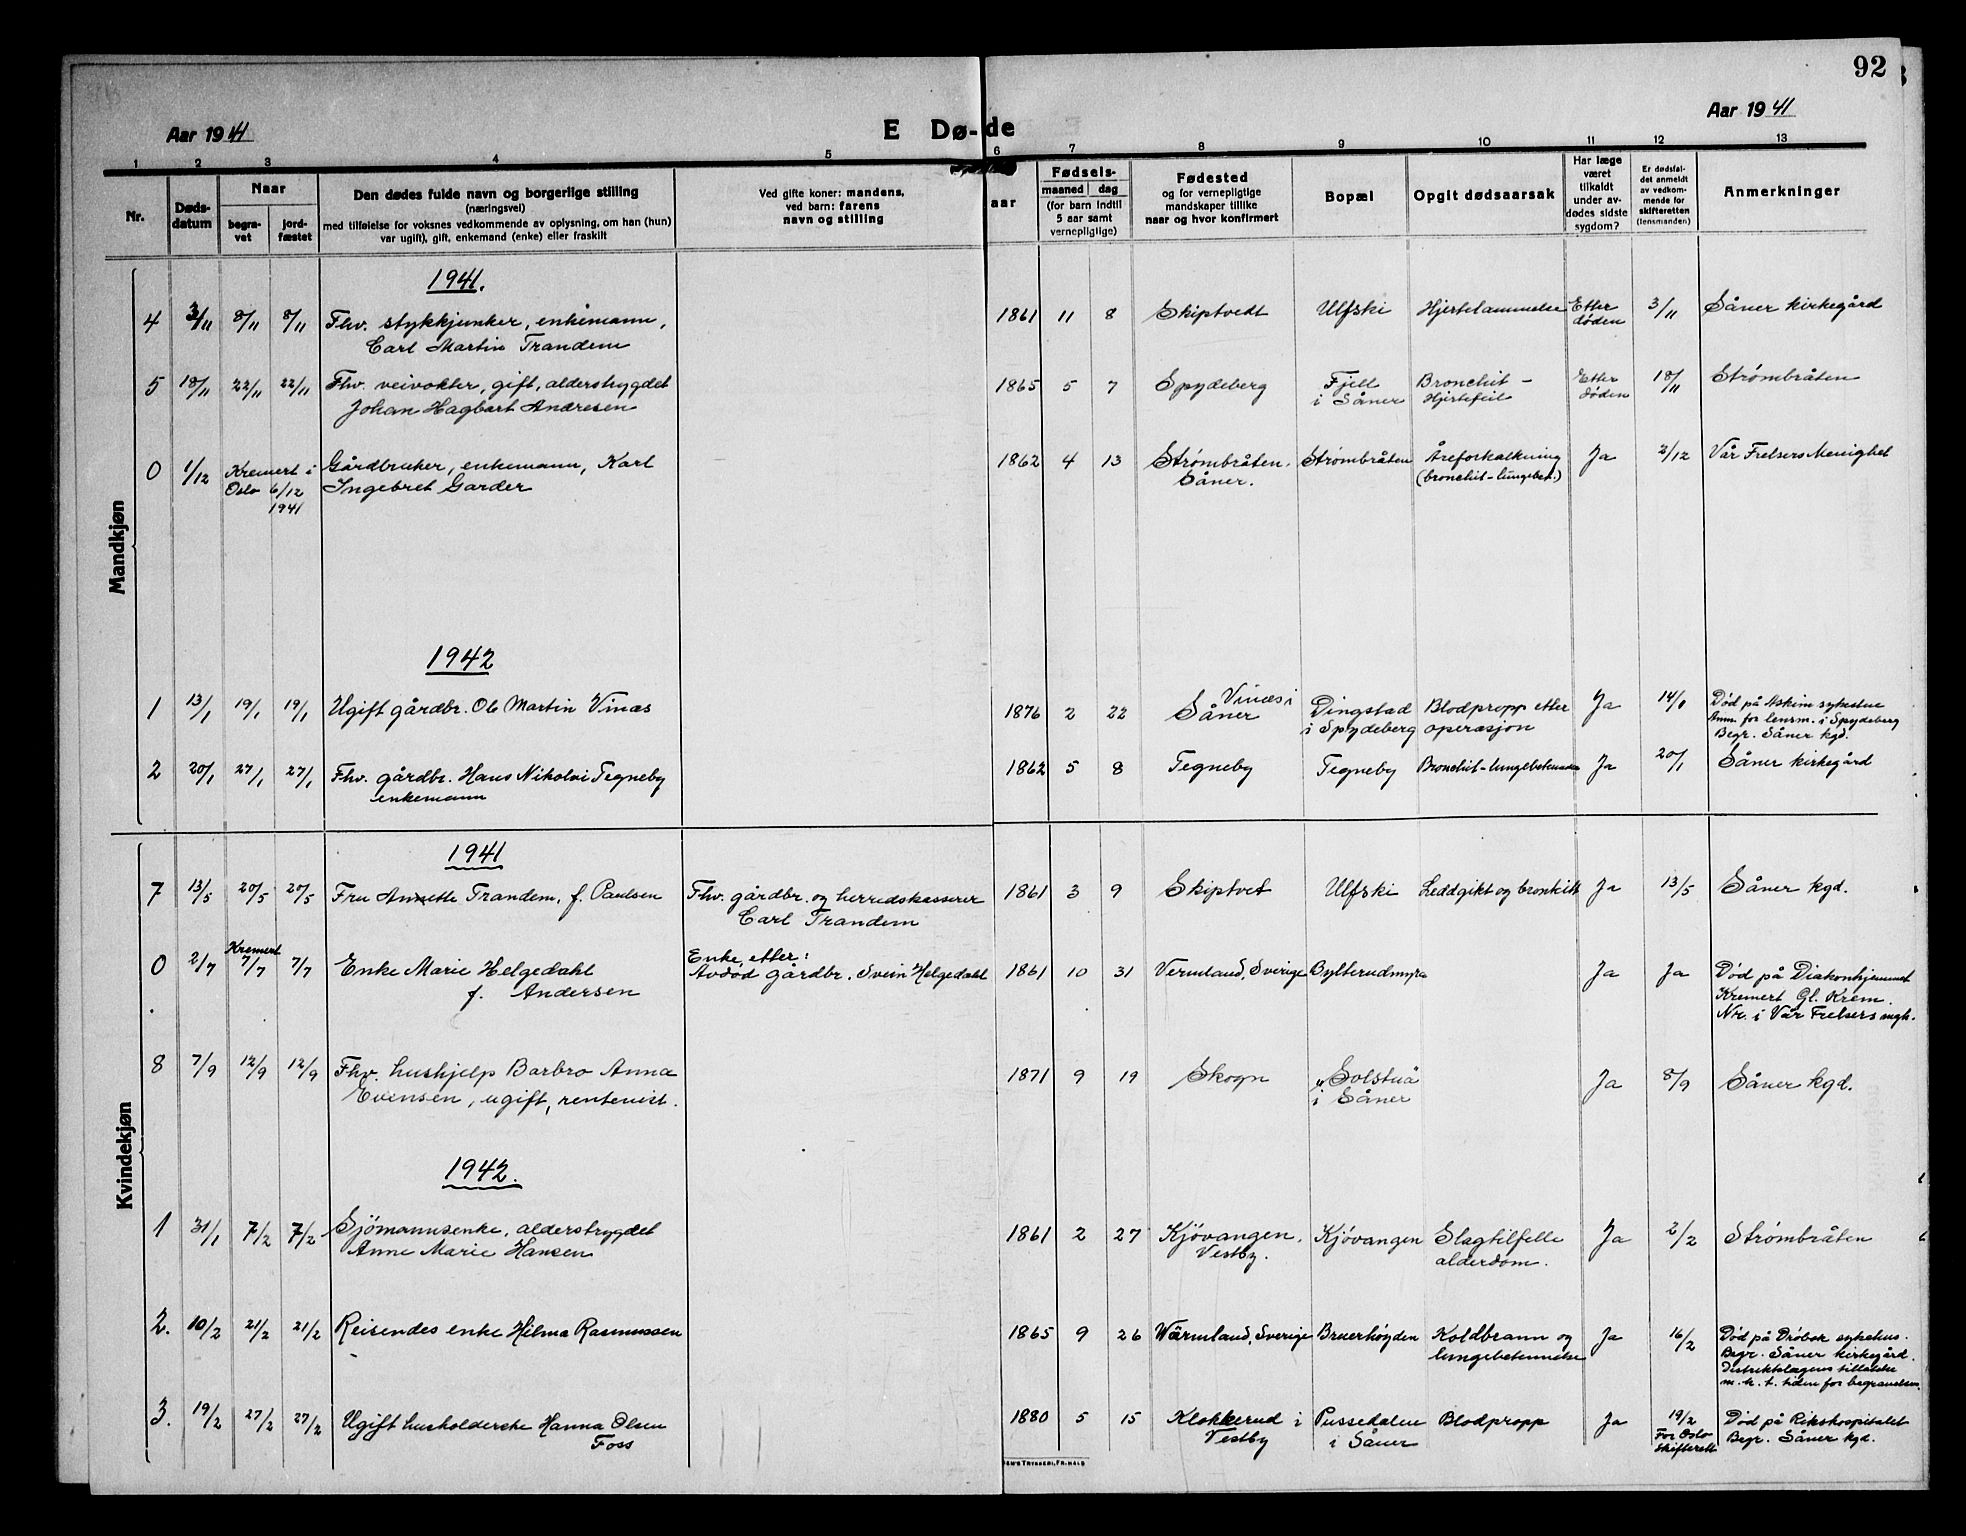 92
Aar 1941
E Dø-de
Aar 1941
1 2 3 4 5 6 7 8 9 10 11 12 13
Nr.
Døds-
datum
Naar
begra-
vet
jord-
fæstet
Den dødes fulde navn og borgerlige stilling
(næringsvei)
med tilføielse for voksnes vedkommende av oplysning, om han (hun)
var ugift), gift, enkemand (enke) eller fraskilt
Ved gifte koner: mandens,
ved barn: farens
navn og stilling
aar
Fødsels-
maaned dag
(for barn indtil
5 aar samt
vernepligtige)
Fødested
og for vernepligtige
mandskaper tillike
naar og hvor konfirmert
Bopæl
Opgit dødsaarsak
Har læge
været
tilkaldt
under av-
dødes sidste
sygdom?
Er dødsfal-
det anmeldt
av vedkom-
mende for
skifteretten
(lensmanden)
Anmerkninger
Mandkjøn
1941.
4 3/11 8/11 8/11 Fhv. stykkjunker, enkemann,
Carl Martin Trandem
1861 11 8 Skiptvedt Ulfski Hjertelammelse Etter
døden
3/11 Såner kirkegård
5 18/11 22/11 22/11 Fhv. veivokter, gift, alderstrygdet
Johan Hagbart Andresen
1865 5 7 Spydeberg Fjell
i Såner
Bronchit -
Hjertefeil
Etter
døden
18/11 Strømbråten
0 1/12 Kremert i
Oslo 6/12
1941
Gårdbruker, enkemann, Karl
Ingebret Garder
1862 4 13 Strømbråten,
Såner.
Strømbråten Åreforkalkning
(bronchit-lungebet.)
Ja 2/12 Vår Frelsers Menighet
1942
1 13/1 19/1 19/1 Ugift gårdbr. Ole Martin Vinæs
1876 2 22 Vinæs i
Såner
Dingstad
i Spydeberg
Blodpropp etter
operasjon
Ja 14/1 Død på Askim sykestue
Anm. for lensm. i Spydeberg
Begr. Såner kgd.
2 20/1 27/1 27/1 Fhv. gårdbr. Hans Nikolai Tegneby
enkemann
1862 5 8 Tegneby Tegneby Bronchit-lungebetennelse Ja 20/1 Såner kirkegård
Kvindekjøn
1941
7 13/5 20/5 20/5 Fru Annette Trandem, f. Paulsen
Fhv. gårdbr. og herredskasserer
Carl Trandem
1861 3 9 Skiptvet Ulfski Leddgikt og bronkitt Ja 13/5 Såner kgd.
0 2/7 Kremert
7/7 7/7 Enke Marie Helgedahl
f. Andersen
Enke etter:
Avdød gårdbr. Svein Helgedahl
1861 10 31 Vermland, Sverige Bylterudmyra Ja Ja Død på Diakonhjemmet
Kremert Gl. Krem.
Nr. i Vår Frelsers mgh.
8 7/9 12/9 12/9 Fhv. hushjelp Barbro Anna
Evensen, ugift, rentenist.
1871 9 19 Skogn Solstuå
i Såner
Ja 8/9 Såner kgd.
1942.
1 31/1 7/2 7/2 Sjömannsenke, alderstrygdet
Anne Marie Hansen
1861 2 27 Kjövangen,
Vestby.
Kjövangen Slagtilfelle
alderdom.
Ja 2/2 Strømbråten
2. 10/2 21/2 21/2 Reisendes enke Hilma Rasmussen
1865 9 26 Wärmland, Sverige Bruerhöyden Koldbrann og
lungebetennelse
Ja 16/2 Død på Drøbak sykehus.
Begr. Såner kirkegård.
Distriktslægens tillatelse
m. h. t. tiden for begravelsen
3. 19/2 27/2 27/2 Ugift husholderske Hanna Olsen
Foss
1880 5 15 Klokkerud i
Vestby
Pussedalen
i Såner
Blodpropp Ja 19/2
For Oslo
skifterett
Død på Rikshospitalet
Begr. Såner kgd.